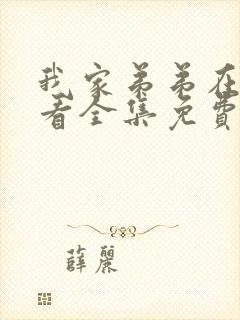 我家弟弟在
看全集免費
薛麗